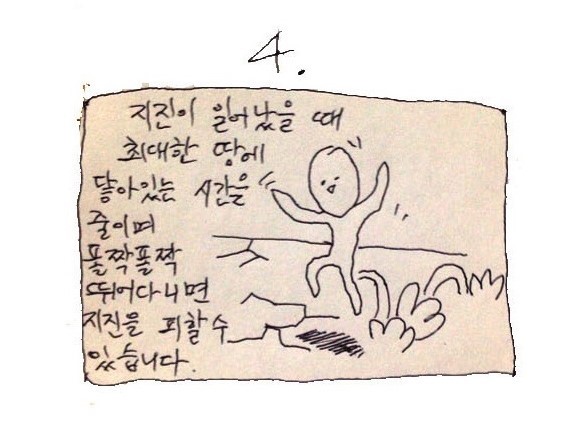 4.
지진이 일어났을 때
최대한 땅에
닿아있는 시간을
줄이며
폴짝폴짝
뛰어다니면
지진을 피할 수
있습니다.